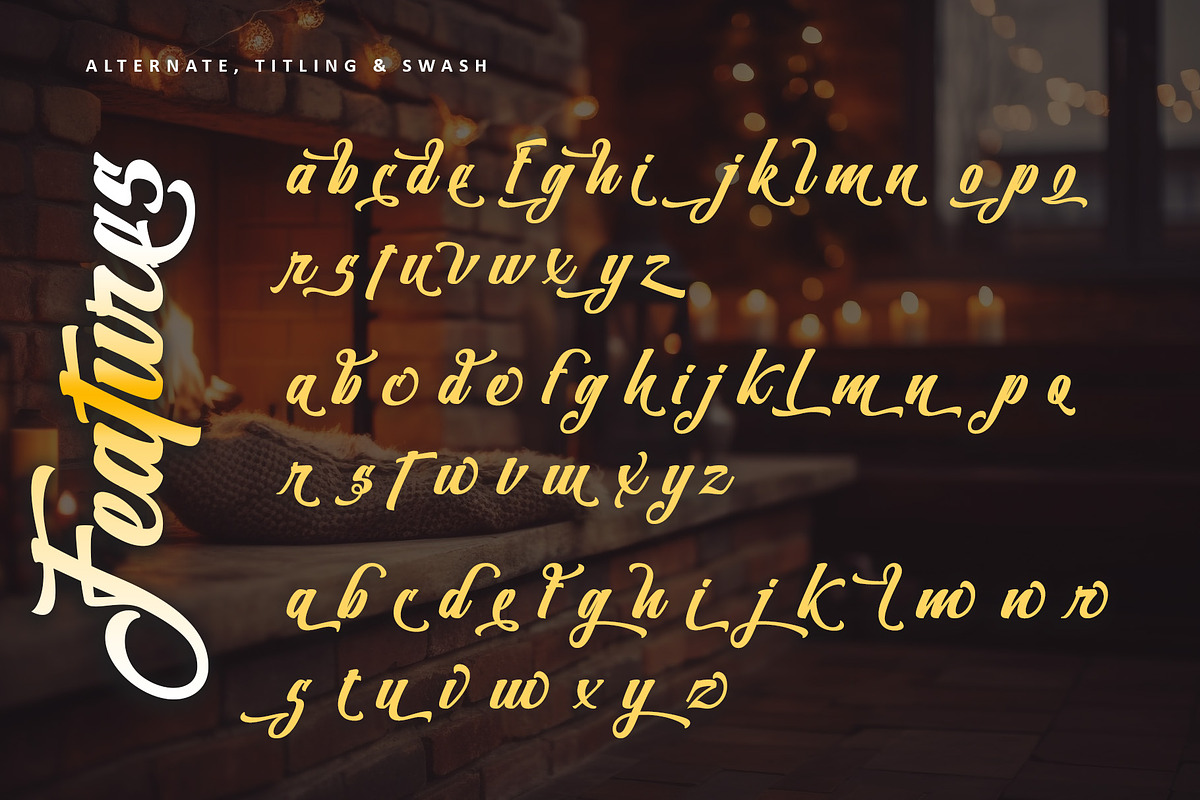 ALTERNATE, TITLING & SWASH
Features
abcde fghi jklmn opq
rstuvwxyz
abcdefghijklmn pq
rstuvwxyz
abcdefghijklmnr
stuvwxyz